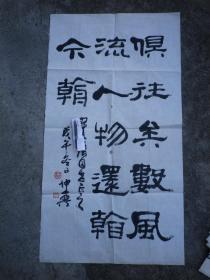 俱往矣數風
流人物還看
今朝
戊午冬日